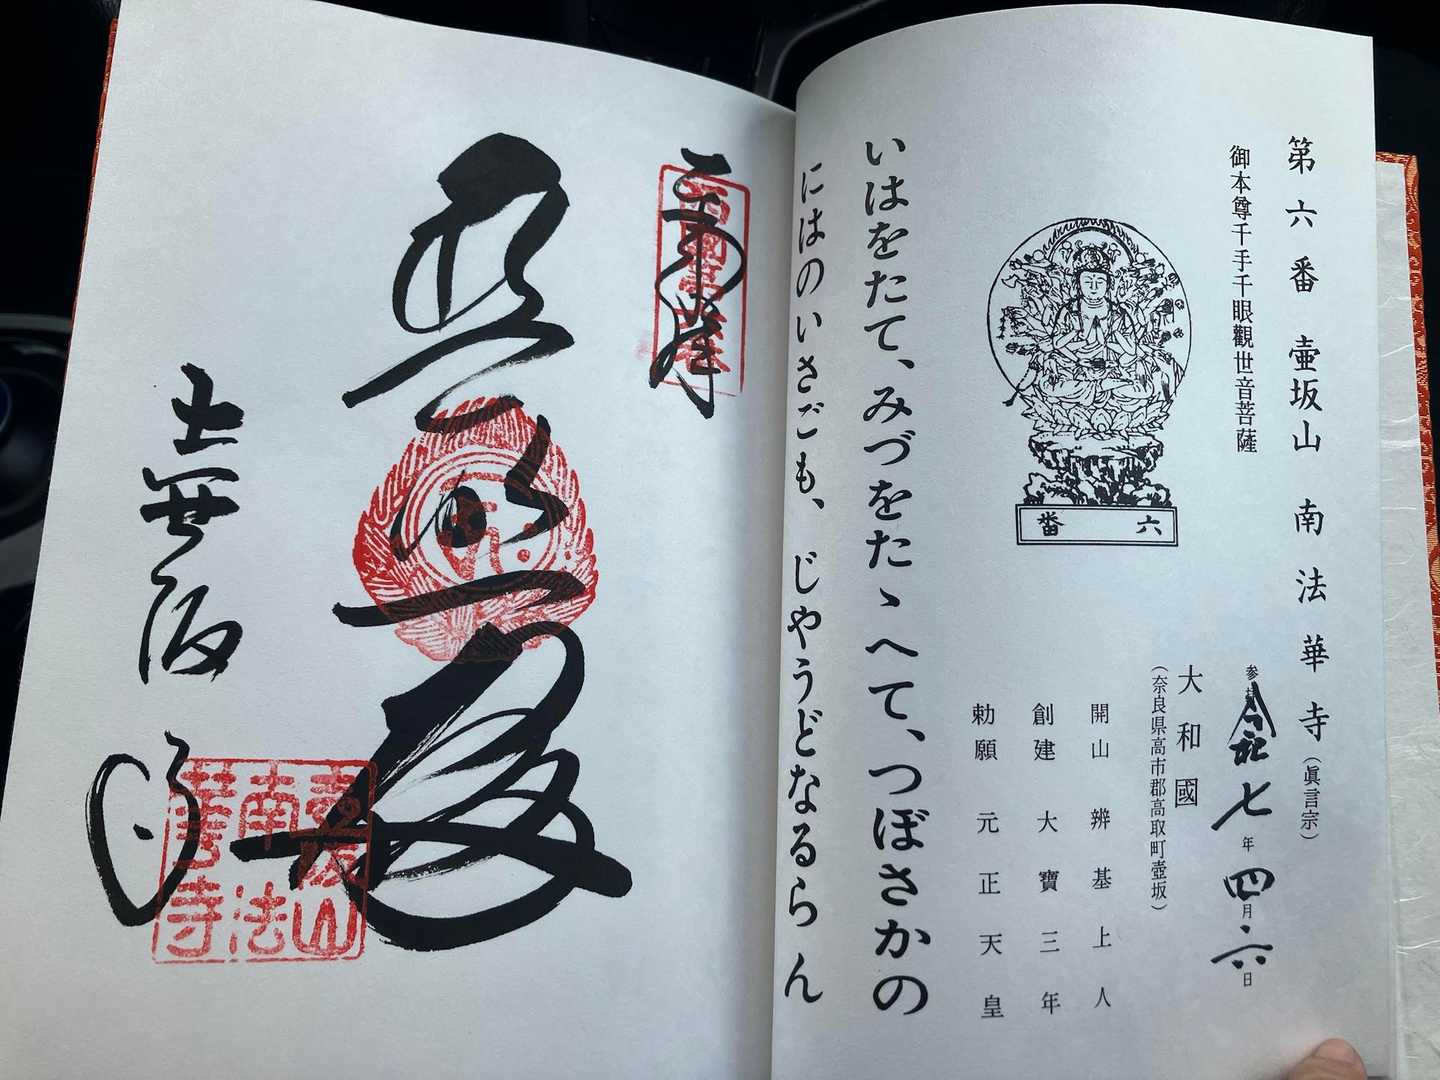 第六番 壷坂山 南法華寺（眞言宗）
御本尊千手千眼觀世音菩薩
参拝 令和七年四月六日
大和國
（奈良県高市郡高取町壷坂）
開山 辨基上人
創建 大寶三年
勅願 元正天皇
六番
いはをたて、みづをたゝへて、つぼさかの
にはのいさごも、じやうどなるらん
奉拝
壷阪寺
壷阪山
南法
華寺